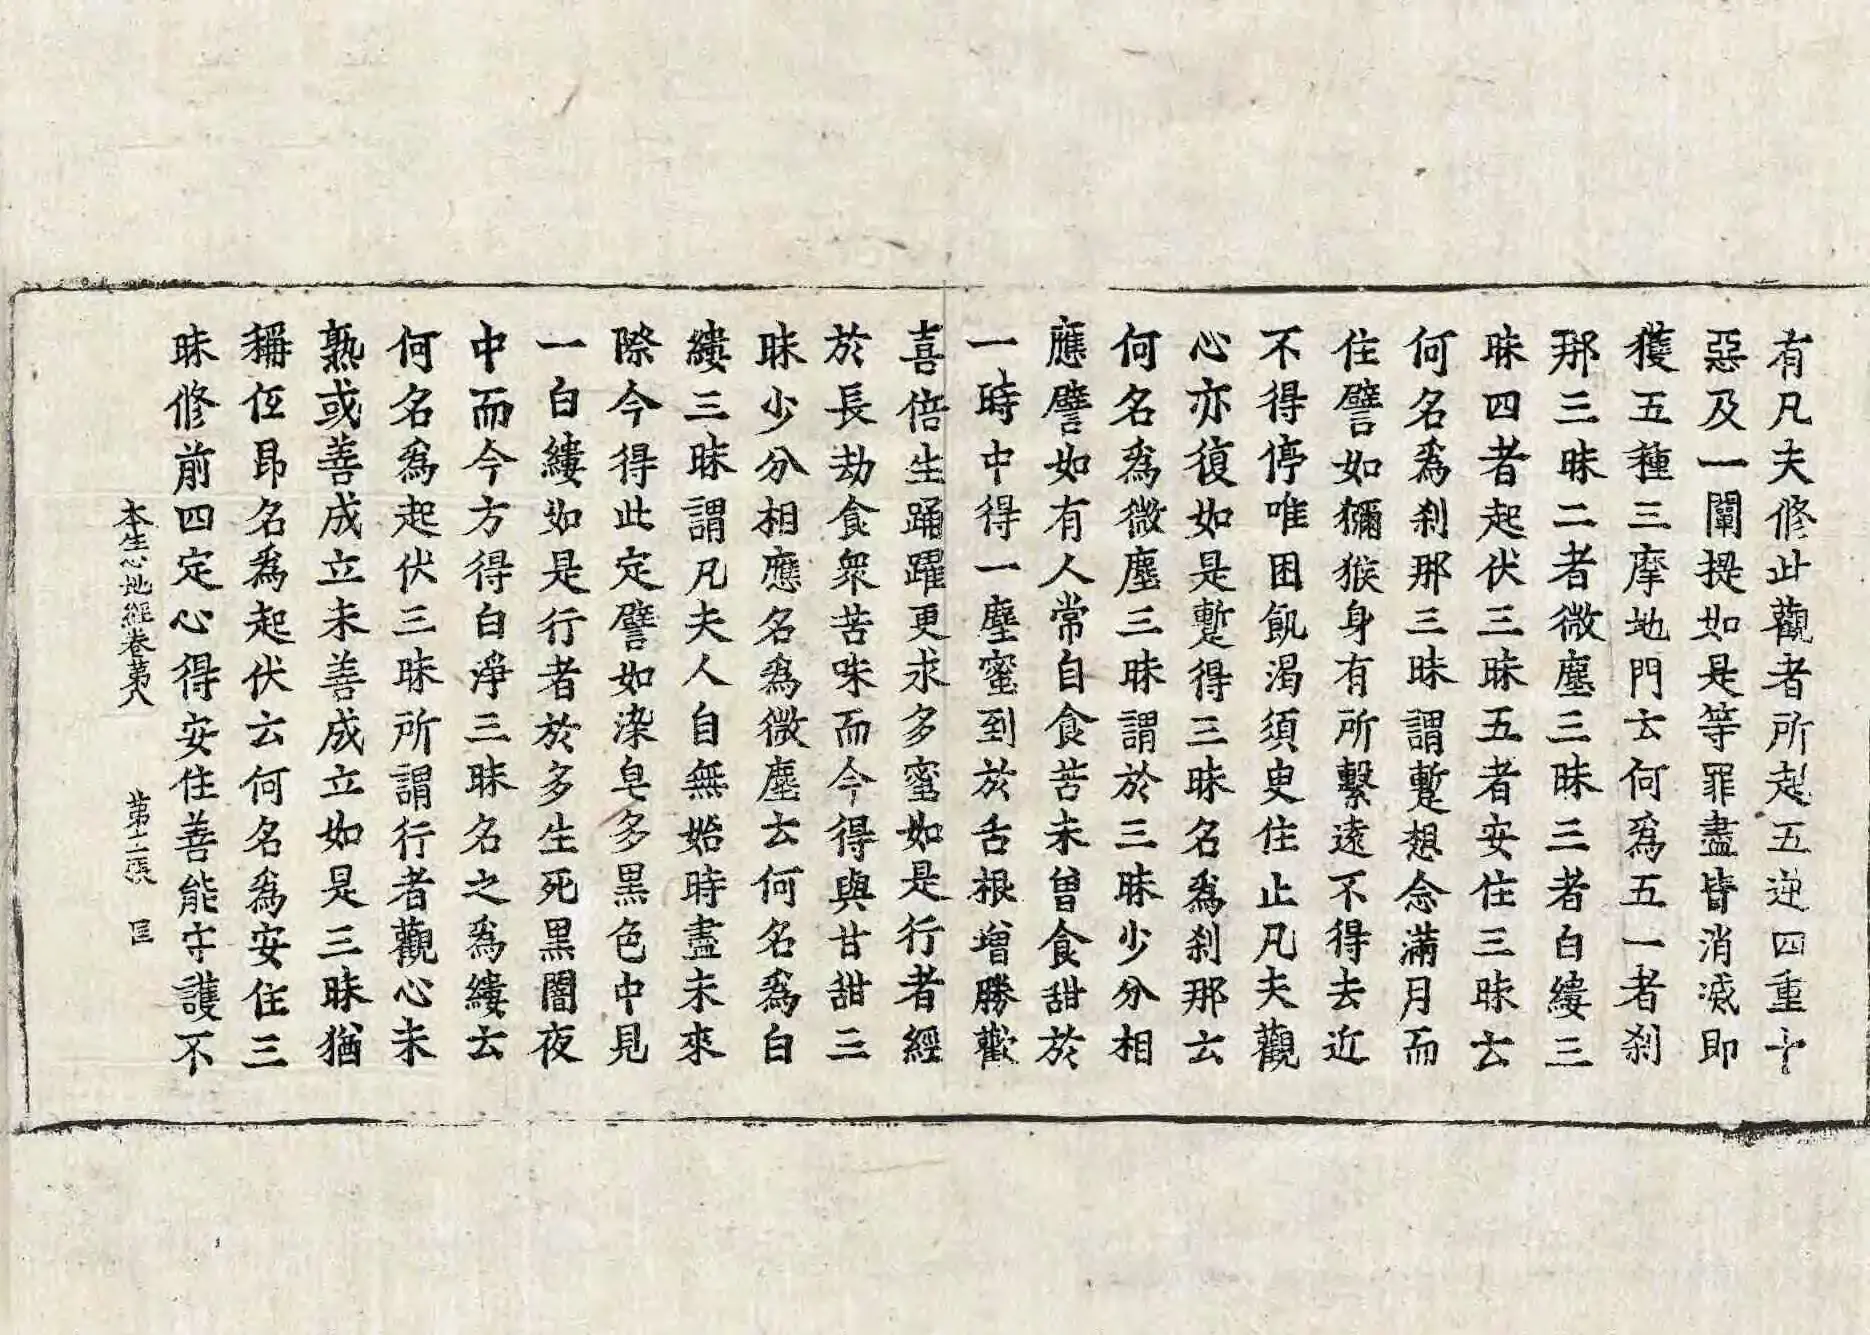 有凡夫修此觀者所起五逆四重十
惡及一闡提如是等罪盡皆消滅即
獲五種三摩地門云何爲五一者刹
那三昧二者微塵三昧三者白縷三
昧四者起伏三昧五者安住三昧云
何名爲刹那三昧謂蹔想念滿月而
住譬如獼猴身有所繫遠不得去近
不得停唯困飢渴須臾住止凡夫觀
心亦復如是蹔得三昧名爲刹那云
何名爲微塵三昧謂於三昧少分相
應譬如有人常自食苦未曾食甜於
一時中得一塵蜜到於舌根增勝歡
喜倍生踊躍更求多蜜如是行者經
於長劫食衆苦味而今得與甘甜三
昧少分相應名爲微塵云何名爲白
縷三昧謂凡夫人自無始時盡未來
際今得此定譬如染皂多黑色中見
一白縷如是行者於多生死黑闇夜
中而今方得白淨三昧名之爲縷云
何名爲起伏三昧所謂行者觀心未
熟或善成立未善成立如是三昧猶
稱伍昂名爲起伏云何名爲安住三
昧修前四定心得安住善能守護不
本生心地經卷第八 第十二張 匡